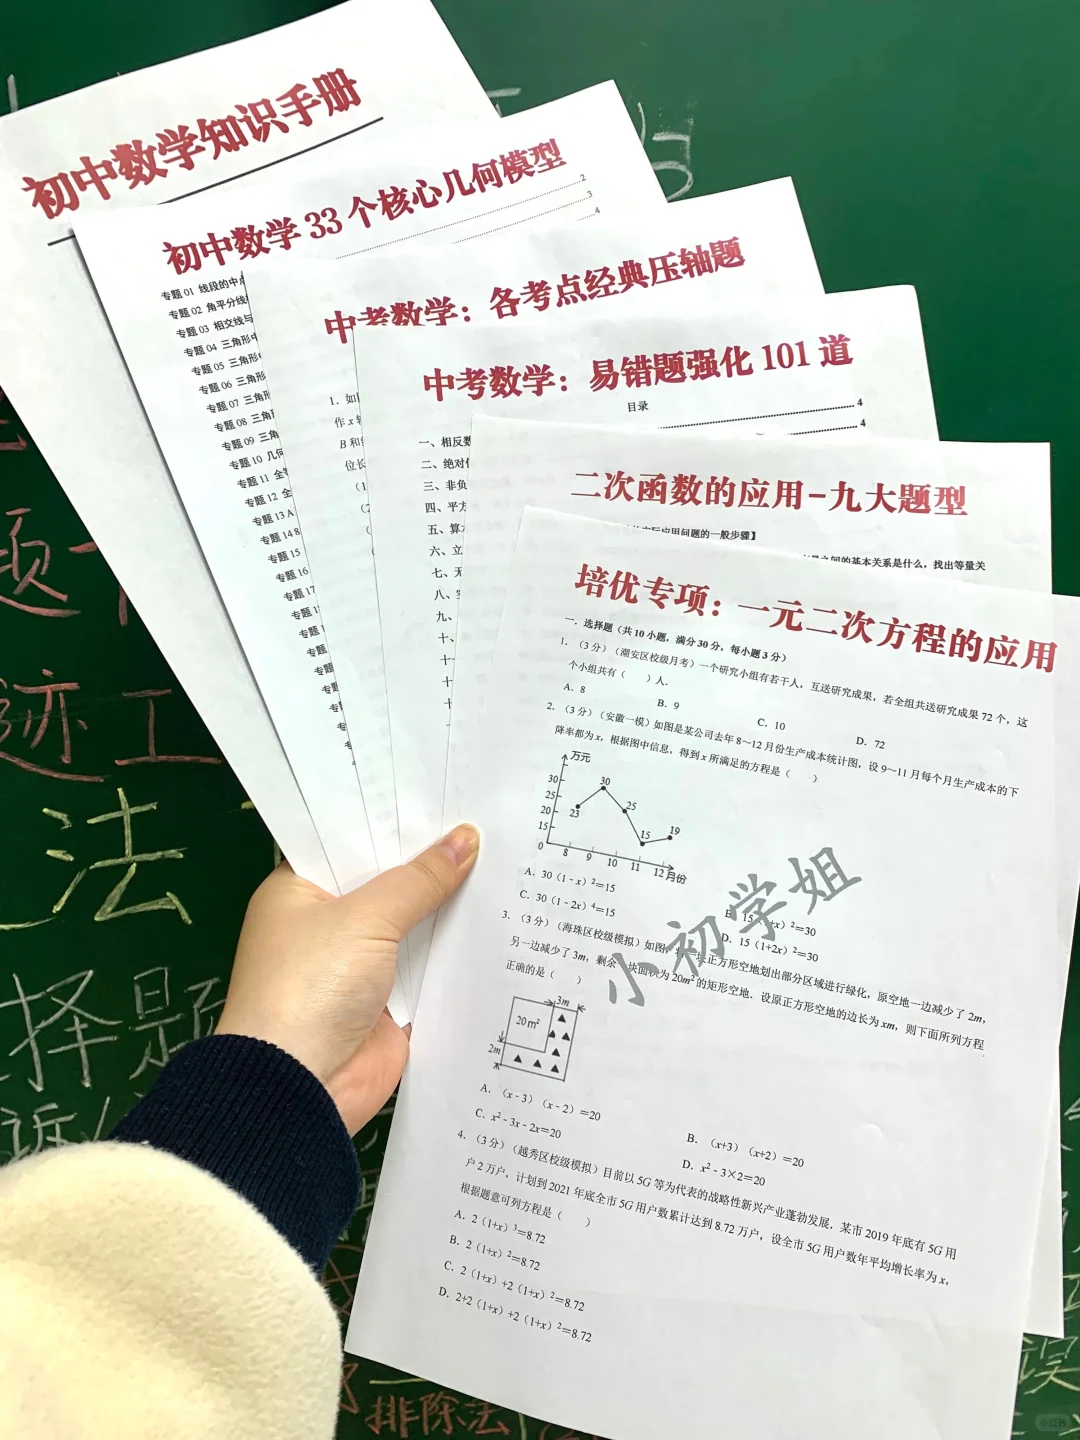 初中数学知识手册
初中数学 33 个核心几何模型
2
3
4
专题 01 线段的中点
专题 02 角平分线
专题 03 相交线与
专题 04 三角形中
专题 05 三角形
专题 06 三角形
专题 07 三角形
专题 08 三角形
专题 09 三角
专题 10 几何
专题 11 全等
专题 12 全
专题 13 A
专题 14 8
专题 15
专题 16
专题 17
专题
专题
专题
专题
中考数学：各考点经典压轴题
1. 如
作 x 轴
B 和
位长
中考数学：易错题强化 101 道
目录
4
4
一、相反数
二、绝对值
三、非负
四、平方
五、算术
六、立
七、无
八、
九、
十、
二次函数的应用-九大题型
实际应用问题的一般步骤】
之间的基本关系是什么，找出等量关
培优专项：一元二次方程的应用
一．选择题（共 10 小题，满分 30 分，每小题 3 分）
1.（3 分）（潮安区校级月考）一个研究小组有若干人，互送研究成果，若全组共送研究成果 72 个，这
个小组共有（ ）人.
A. 8
B. 9
C. 10
D. 72
2.（3 分）（安徽一模）如图是某公司去年 8～12 月份生产成本统计图，设 9～11 月每个月生产成本的下
降率都为 x，根据图中信息，得到 x 所满足的方程是（ ）
万元
30
25
20
15
0
23
30
25
15
19
8 9 10 11 12 月份
A. 30（1﹣x）²=15
B. 15（1+x）²=30
C. 30（1﹣2x）⁴=15
D. 15（1+2x）²=30
3.（3 分）（海珠区校级模拟）如图，将一块正方形空地划出部分区域进行绿化，原空地一边减少了 2m，
另一边减少了 3m，剩余一块面积为 20m²的矩形空地．设原正方形空地的边长为 xm，则下面所列方程
正确的是（ ）
3m
20m²
2m
A.（x﹣3）（x﹣2）=20
B.（x+3）（x+2）=20
C. x²﹣3x﹣2x=20
D. x²﹣3×2=20
4.（3 分）（越秀区校级模拟）目前以 5G 等为代表的战略性新兴产业蓬勃发展．某市 2019 年底有 5G 用
户 2 万户，计划到 2021 年底全市 5G 用户数累计达到 8.72 万户，设全市 5G 用户数年平均增长率为 x，
根据题意可列方程是（ ）
A. 2（1+x）³=8.72
B. 2（1+x）²=8.72
C. 2（1+x）+2（1+x）²=8.72
D. 2+2（1+x）+2（1+x）²=8.72
小初学姐
迹 工
法
择题
诉
排除法
误
小红书